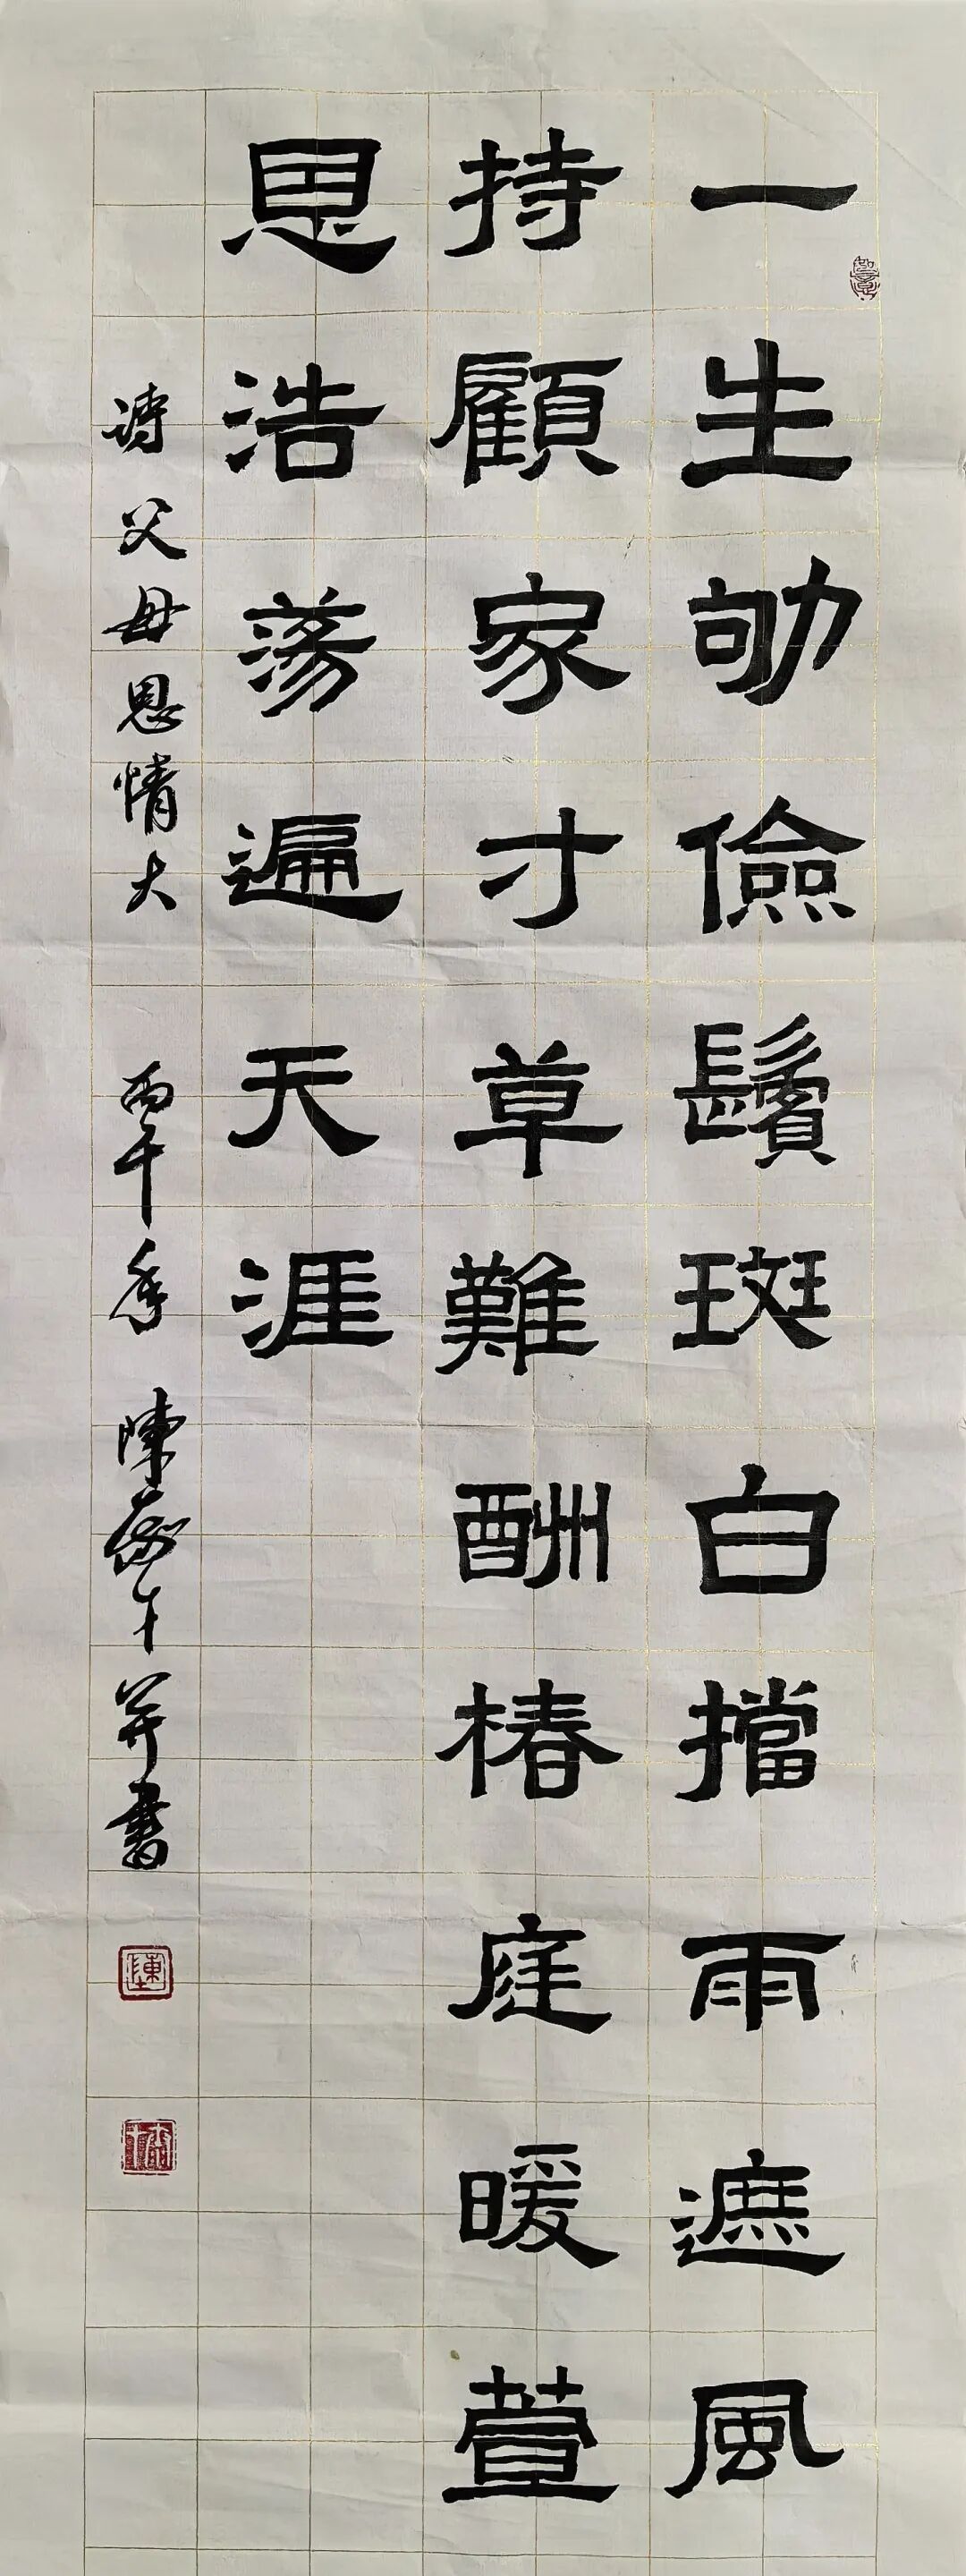 一生劬儉鬢斑白擋雨遮風
持顧家才草難酬椿庭暖萱
恩浩蕩遍天涯
詩父母恩情大 丙午年 陳 十并書